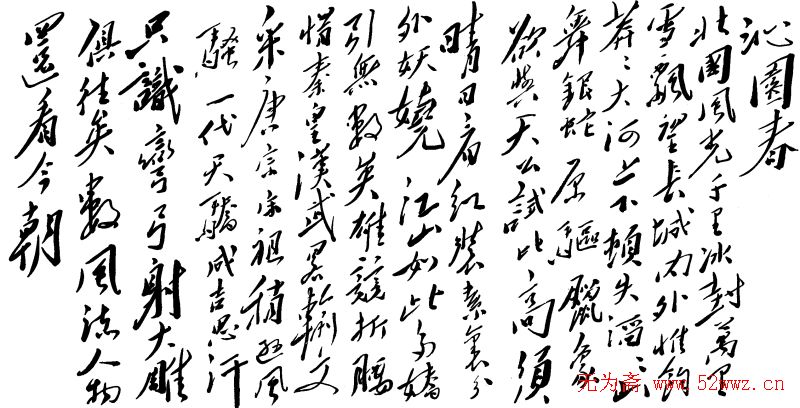 沁園春
北國風光千里冰封萬里
雪飄望長城內外惟餘
莽々大河上下頓失滔々山
舞銀蛇原驅臘象
欲與天公試比高須
晴日看紅裝素裹分
外妖嬈江山如此多嬌
引無數英雄競折腰
惜秦皇漢武略輸文
采唐宗宋祖稍遜風
騷一代天驕成吉思汗
只識彎弓射大雕
俱往矣數風流人物
還看今朝
无为斋 www.52wwz.cn